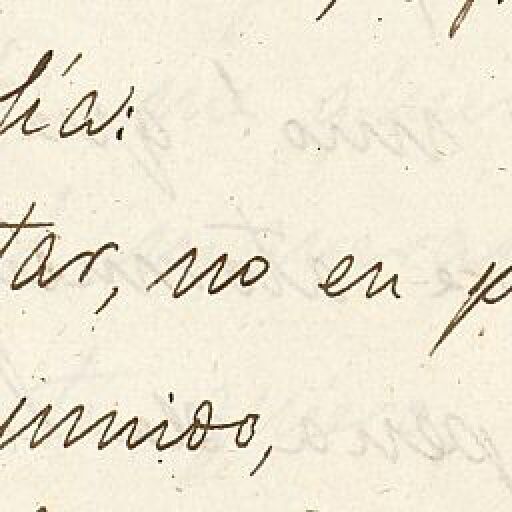 lía:
tar, no en p
unido,